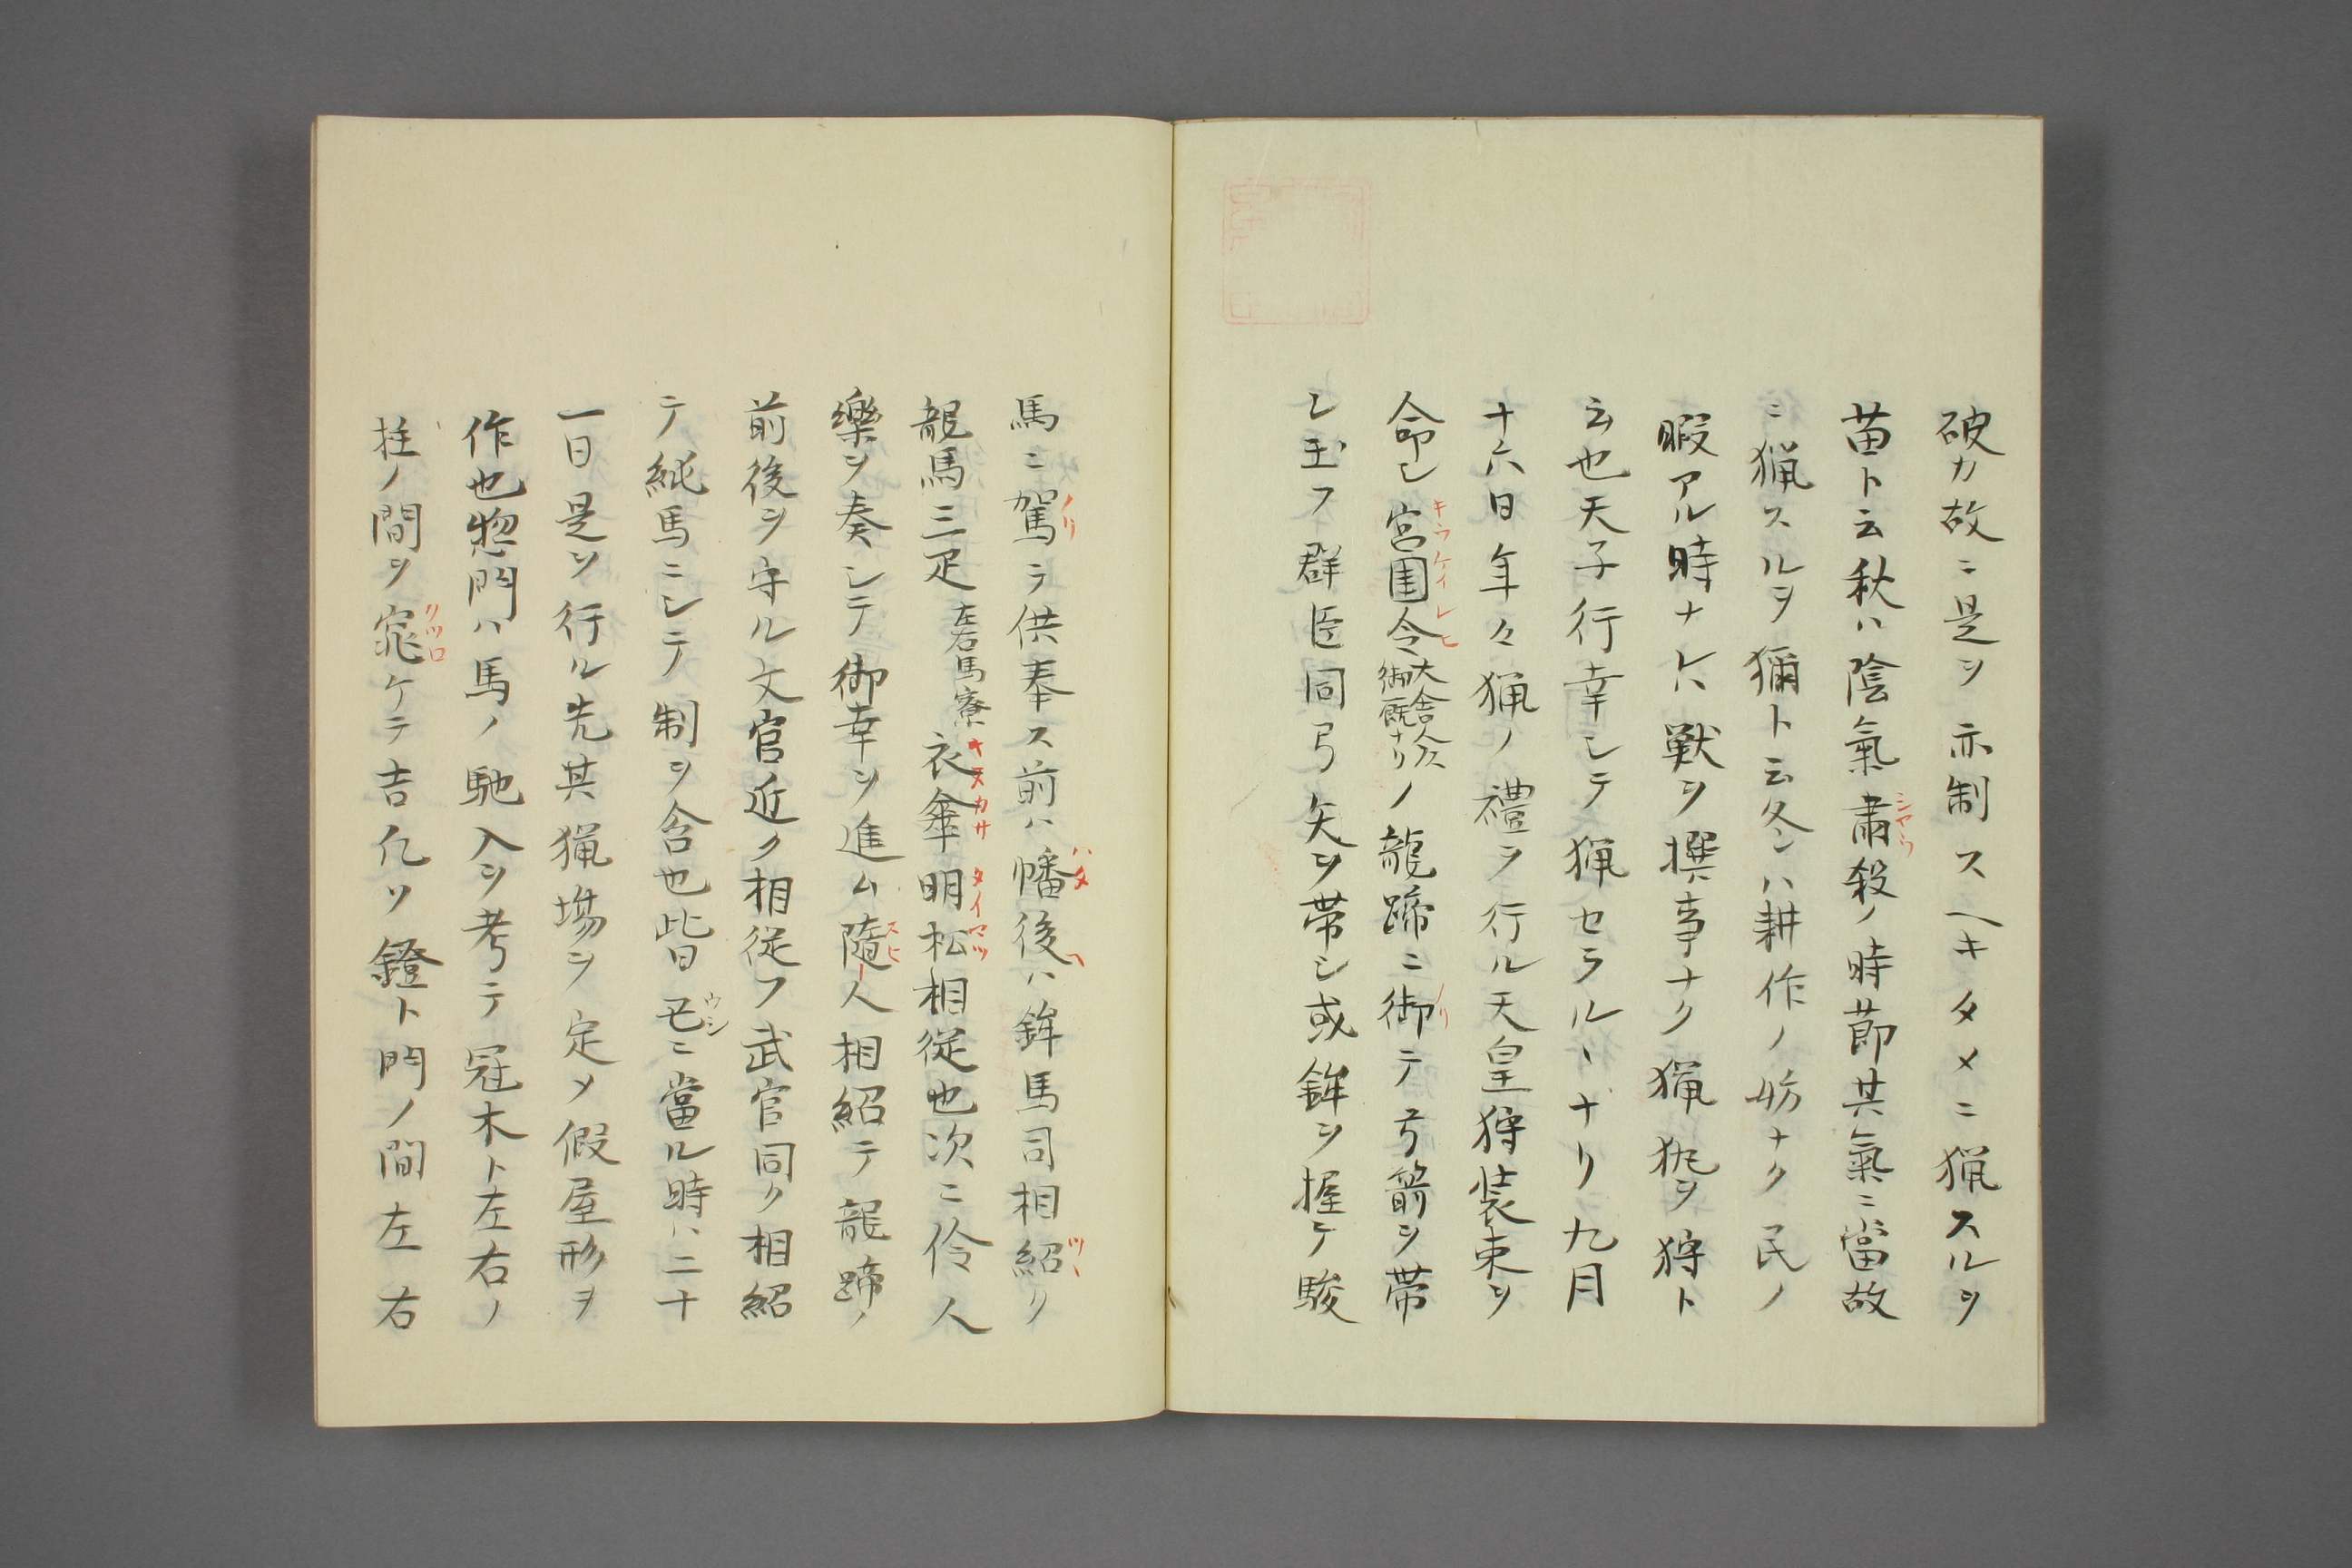 破カ故ニ是ヲ亦制スヘキタメニ猟スルヲ
苗ト云秋ハ陰氣肅殺ノ時節其氣ニ當故
シヤウ
ニ猟スルヲ獮ト云冬ンハ耕作ノ妨ナク民ノ
暇アル時ナレハ獸ヲ撰事ナク猟狐ヲ狩ト
云也天子行幸シテ猟セラルヽナリ九月
十六日年々猟ノ禮ヲ行ル天皇狩装束ヲ
命シ宮圉令大舎人介御厩ナリノ龍蹄ニ御テ弓箭ヲ帯
キウケイレヒ
ノリ
シ玉フ群臣同弓矢ヲ帯シ或鉾ヲ握テ駿
馬ニ駕ラ供奉ス前ハ幡後ハ鉾馬司相紹リ
ノリ
ハタ
ツヽ
龍馬三疋左右馬寮衣傘明松相從也次ニ伶人
キヌカサ
タイマツ
樂ヲ奏シテ御幸ヲ進ム隨人相紹テ龍蹄ノ
スヒ
前後ヲ守ル文官近ク相從フ武官同ク相紹
テ純馬ニシテ制ヲ含也皆丑ニ當ル時ハ二十
ウシ
一日是ヲ行ル先其猟塲ヲ定メ假屋形ヲ
作也惣門ハ馬ノ馳入ヲ考テ冠木ト左右ノ
柱ノ間ヲ窕ケテ吉凢ソ鐙ト門ノ間左右
クツロ